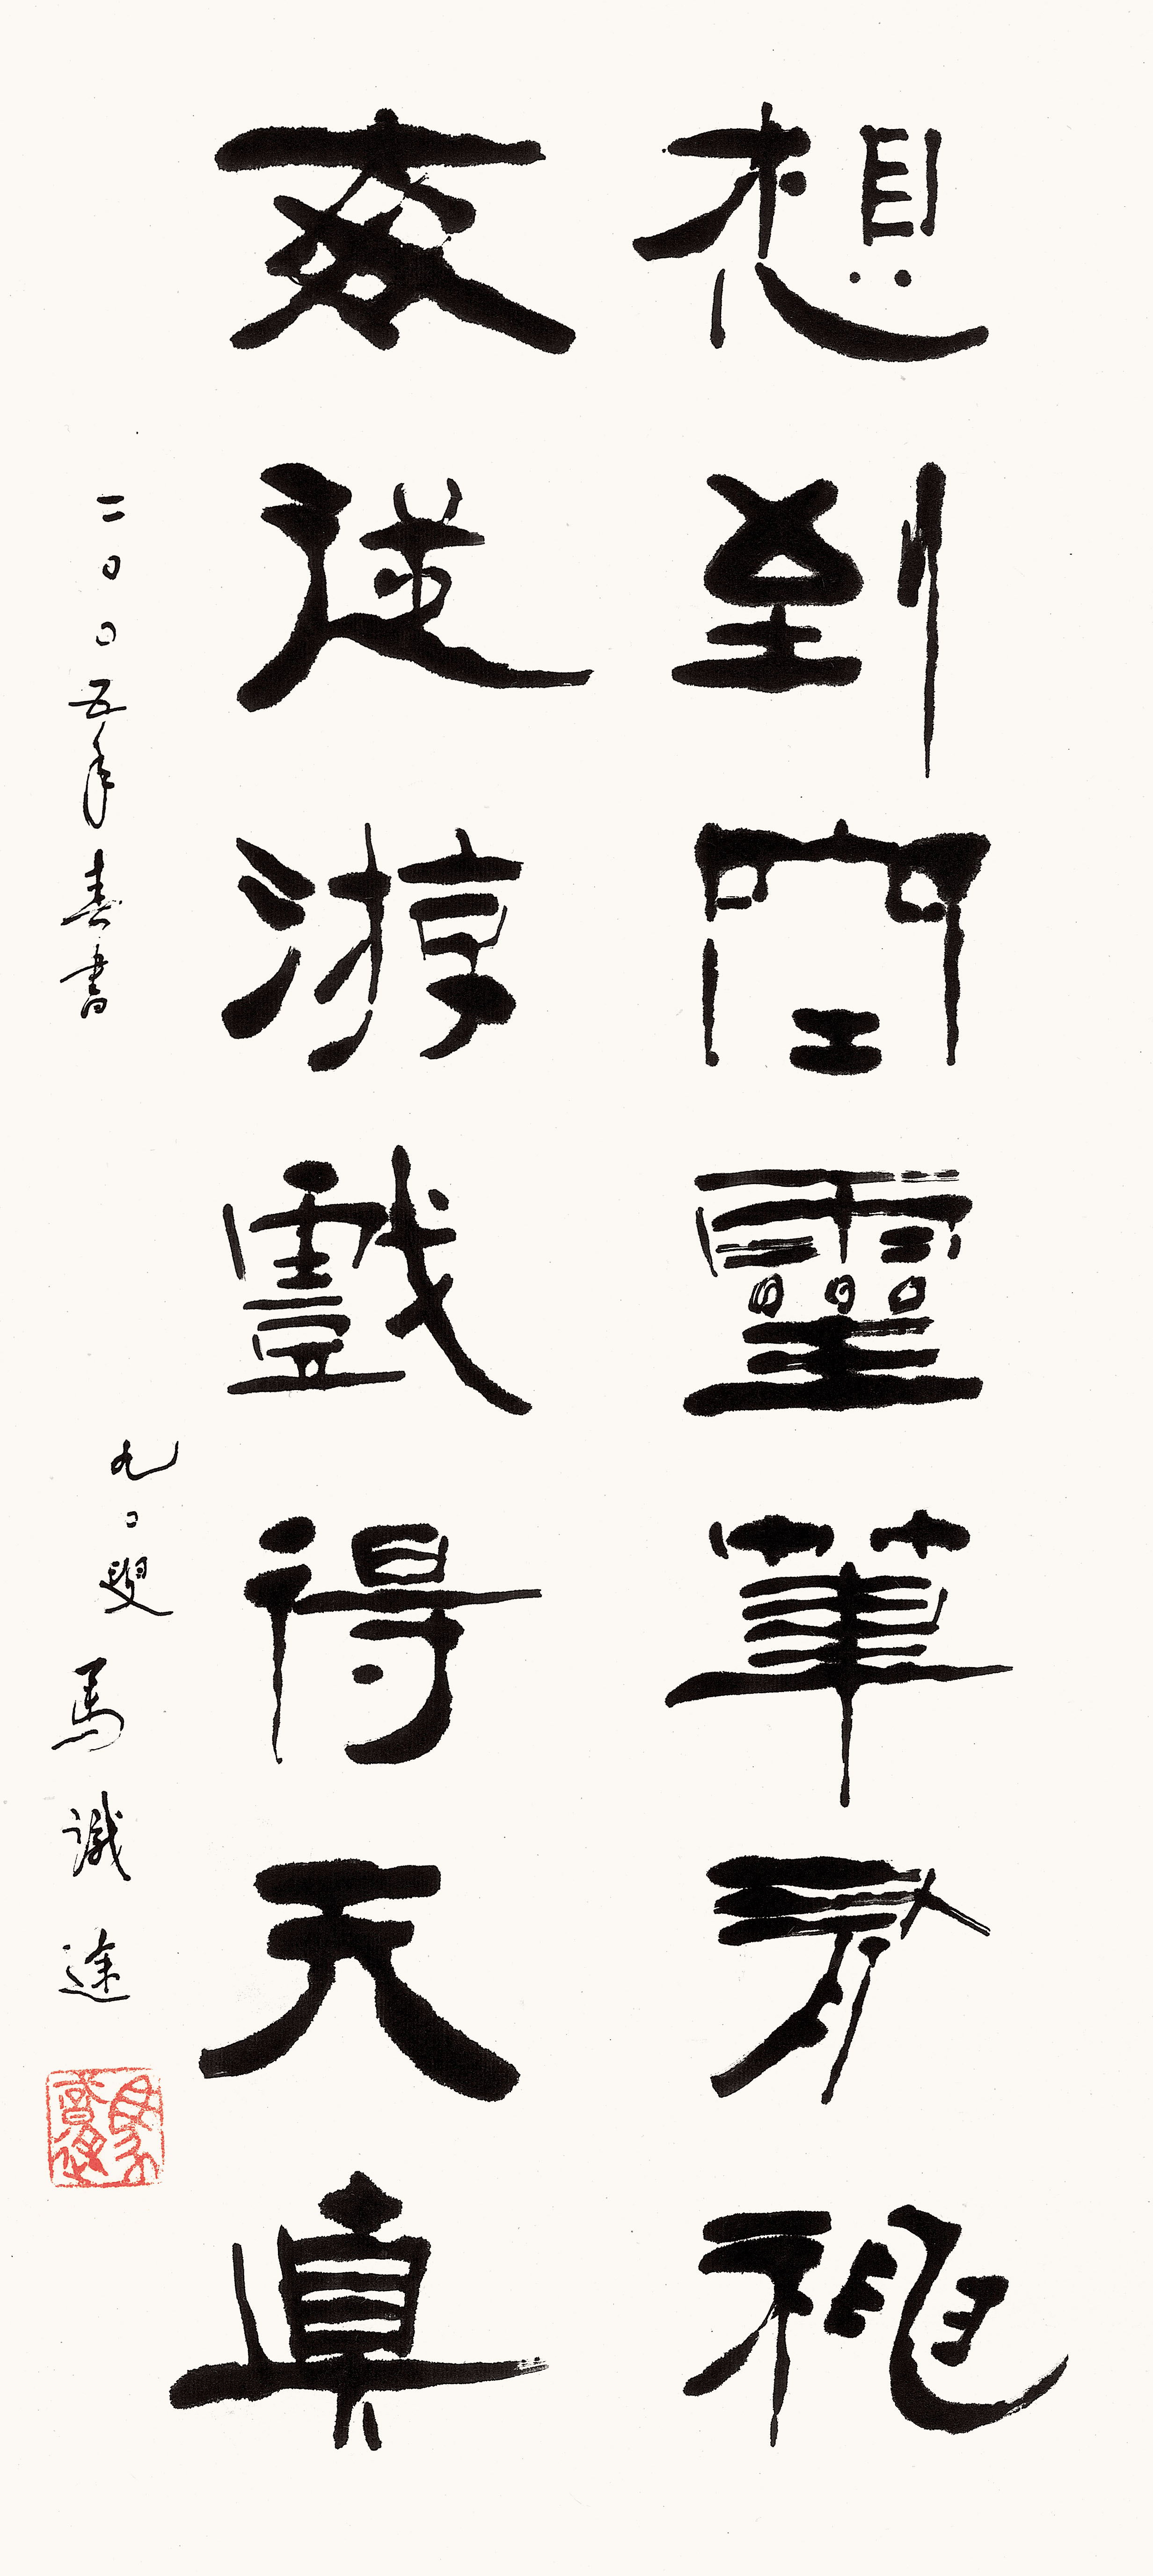 想到空靈筆有神
每從游戲得天真
二〇〇五年春書
九〇叟馬識途
馬識途